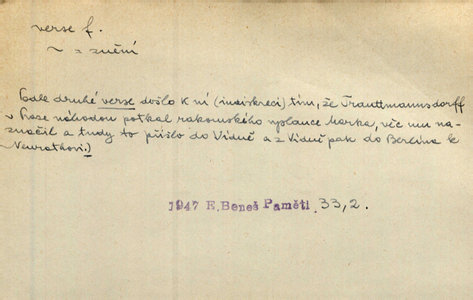 verse f.
~ = znění
Podle druhé verse došlo k ní (indiskreci) tím, že Trauttmannsdorff
v Praze náhodou potkal rakouského vyslance Marka, věc mu na-
značil a tudy to přišlo do Vídně a z Vídně pak do Berlína k
Neurathovi.)
1947 E. Beneš Paměti. 33,2.